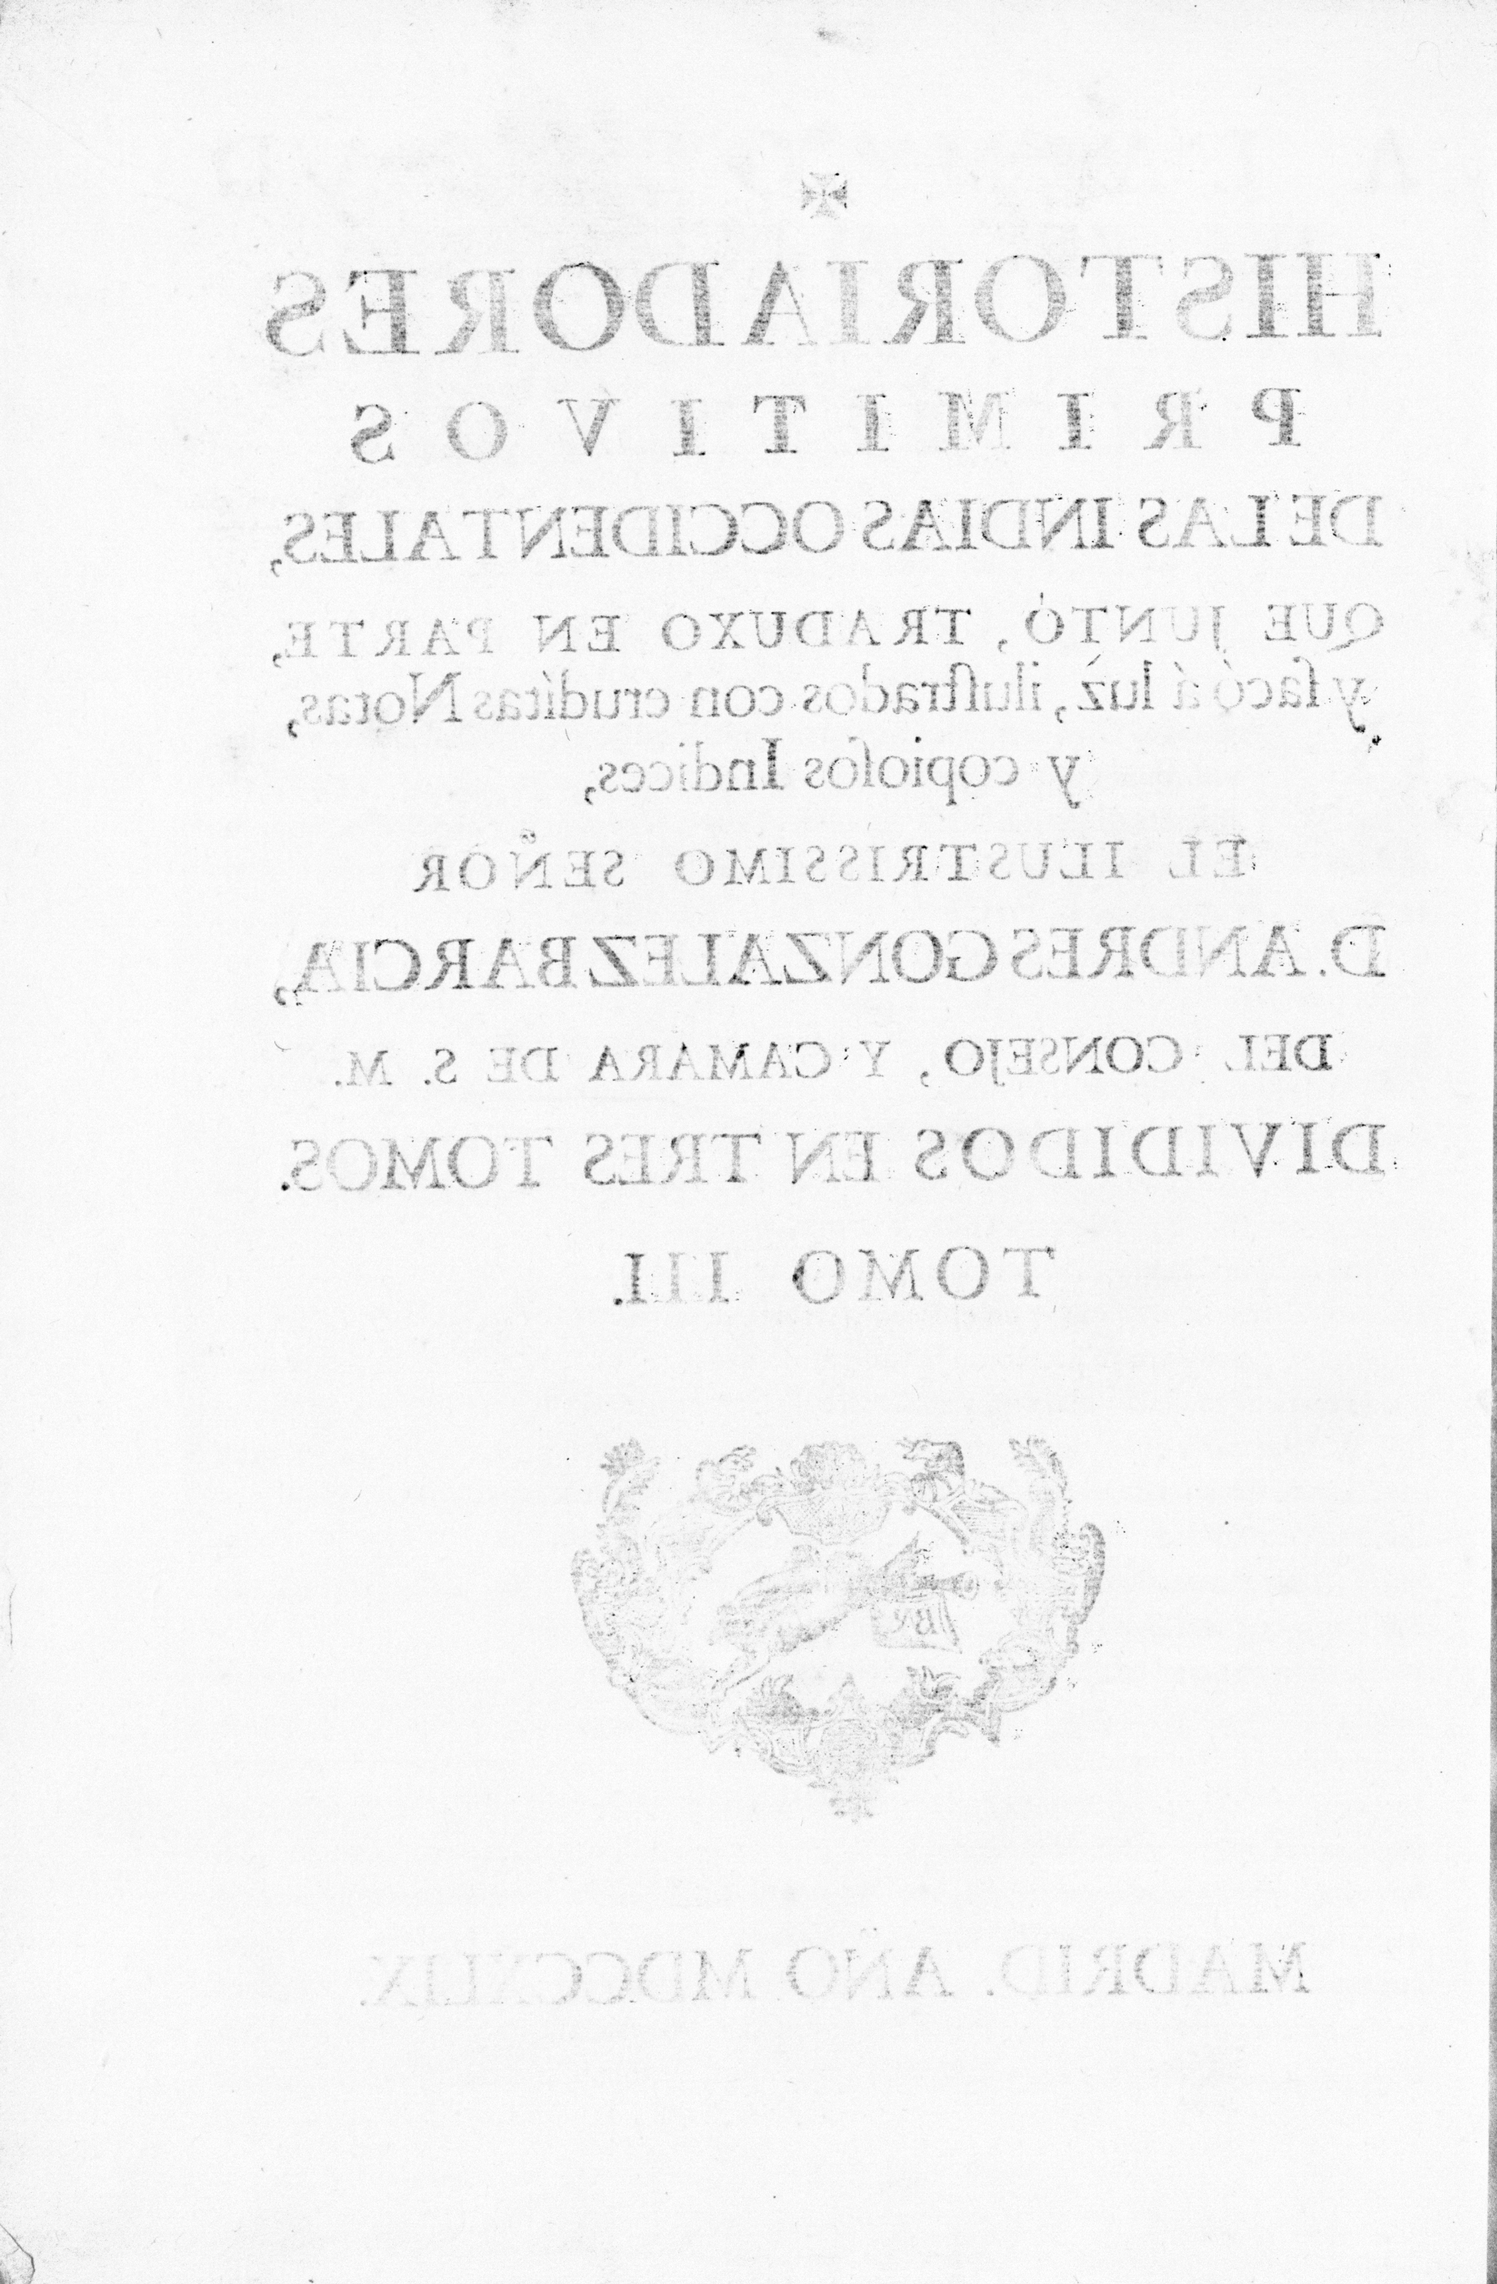 ✠
HISTORIADORES
PRIMITIVOS
DE LAS INDIAS OCCIDENTALES,
QUE JUNTÓ, TRADUXO EN PARTE,
y ſacó á luz, iluſtrados con erudítas Notas,
y copioſos Indices,
EL ILUSTRISSIMO SEÑOR
D. ANDRES GONZALEZ BARCIA,
DEL CONSEJO, Y CAMARA DE S. M.
DIVIDIDOS EN TRES TOMOS.
TOMO III.
MADRID. AÑO MDCCXLIX.